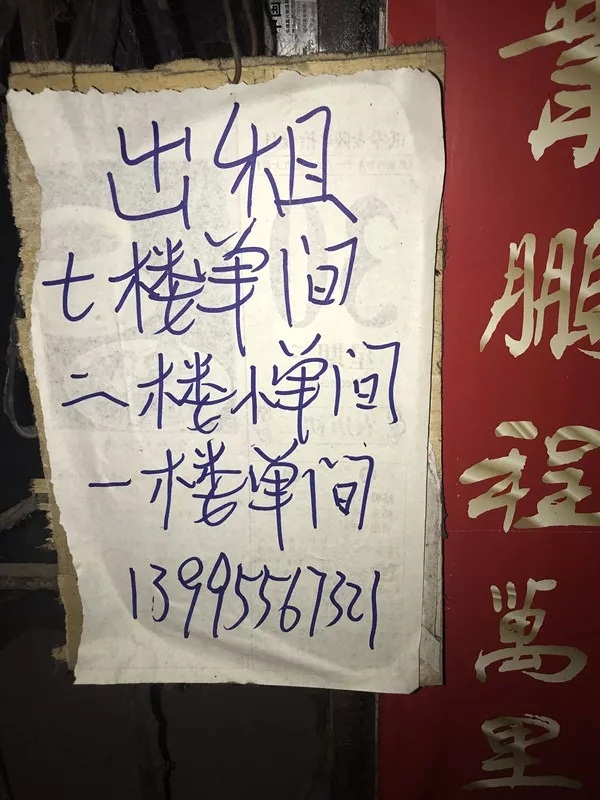 出租
七楼单间
二楼惮间
一楼单间
13995567321
鹏程萬里